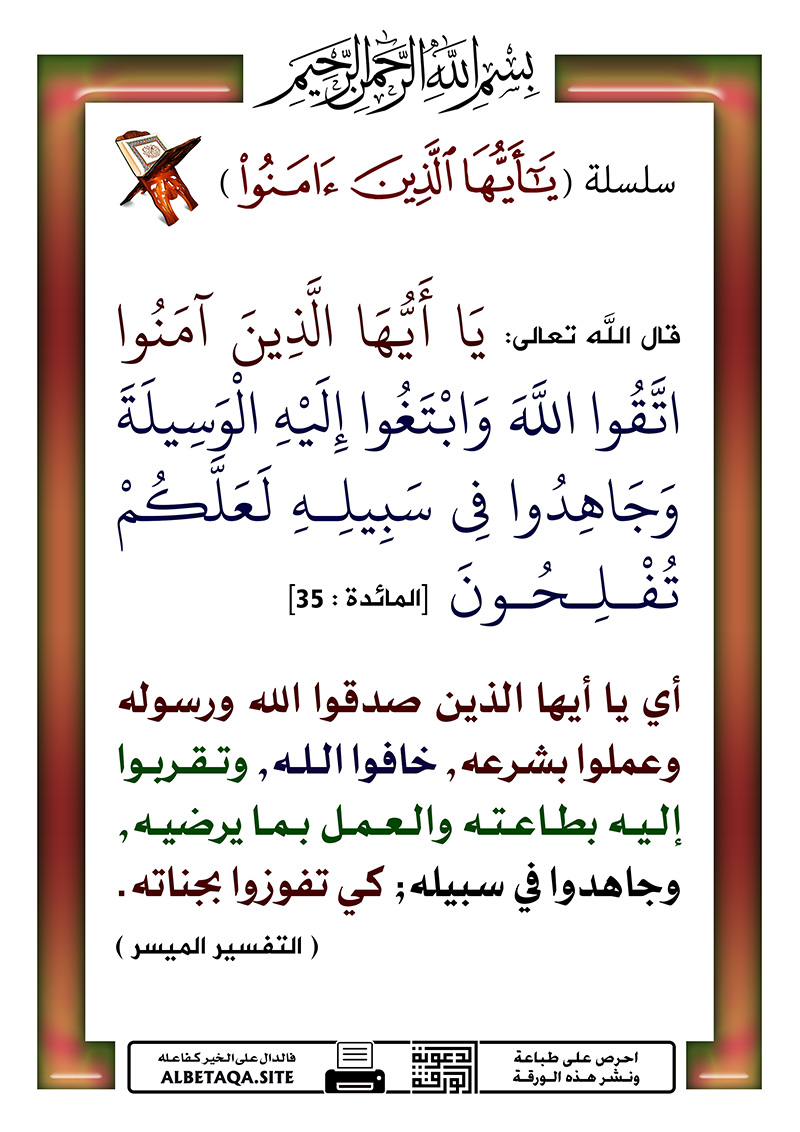 بِسْمِ اللَّهِ الرَّحْمَٰنِ الرَّحِيمِ
سلسلة (يَـٰٓأَيُّهَا ٱلَّذِينَ ءَامَنُوا۟)
قال اللَّه تعالى: يَا أَيُّهَا الَّذِينَ آمَنُوا
اتَّقُوا اللَّهَ وَابْتَغُوا إِلَيْهِ الْوَسِيلَةَ
وَجَاهِدُوا فِي سَبِيلِهِ لَعَلَّكُمْ
تُفْلِحُونَ [المائدة : 35]
أي يا أيها الذين صدقوا الله ورسوله
وعملوا بشرعه, خافوا الله, وتقربوا
إليه بطاعته والعمل بما يرضيه,
وجاهدوا في سبيله; كي تفوزوا بجناته.
( التفسير الميسر )
احرص على طباعة
ونشر هذه الورقة
الورقة الدعوية
فالدال على الخير كفاعله
ALBETAQA.SITE